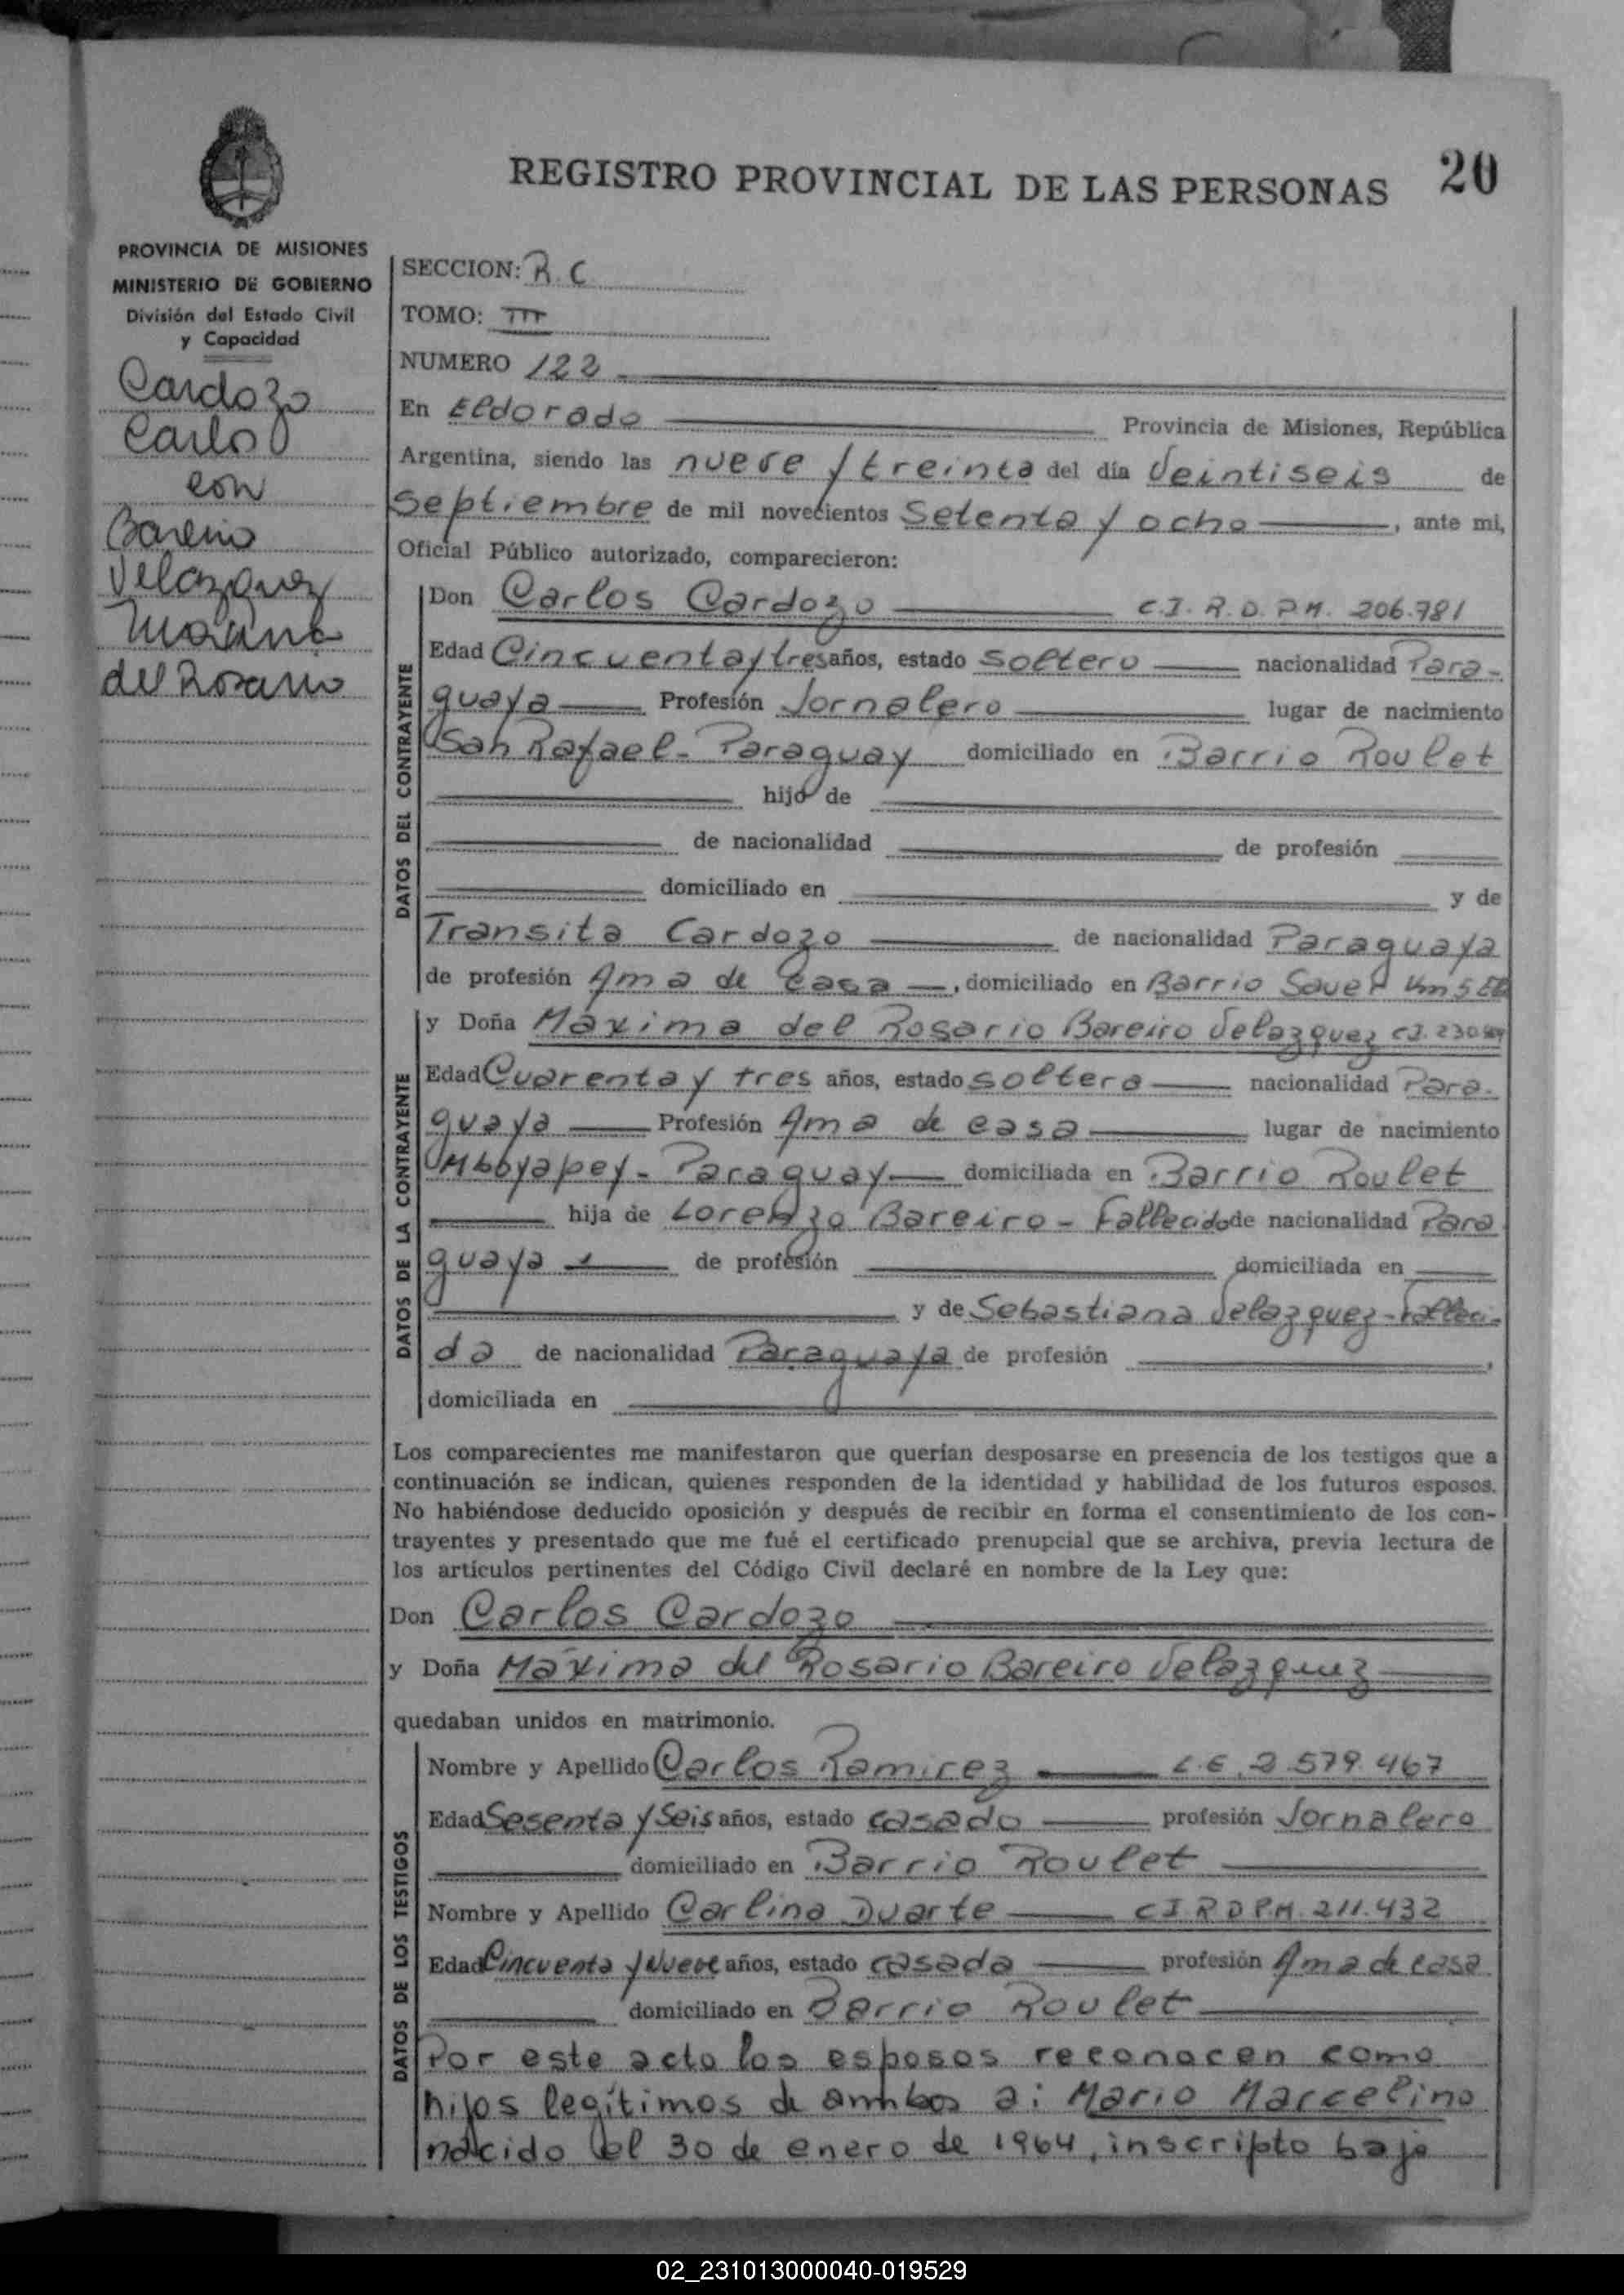 REGISTRO PROVINCIAL DE LAS PERSONAS
20
PROVINCIA DE MISIONES
MINISTERIO DE GOBIERNO
División del Estado Civil
y Capacidad
Cardozo
Carlos
con
Bareiro
Velazquez
Maxima
del Rosario
SECCION: R. C
TOMO: III
NUMERO 122
En Eldorado Provincia de Misiones, República
Argentina, siendo las nueve y treinta del día Veintiseis de
Septiembre de mil novecientos Setenta y ocho, ante mi,
Oficial Público autorizado, comparecieron:
DATOS DEL CONTRAYENTE
Don Carlos Cardozo C.I. R.D.P.M. 206.781
Edad Cincuenta y tres años, estado soltero nacionalidad Para-
guaya Profesión Jornalero lugar de nacimiento
San Rafael - Paraguay domiciliado en Barrio Roulet
hijo de
de nacionalidad de profesión
domiciliado en y de
Transita Cardozo de nacionalidad Paraguaya
de profesión Ama de casa, domiciliado en Barrio Sauer Km 5
DATOS DE LA CONTRAYENTE
y Doña Máxima del Rosario Bareiro Velazquez C.I.
Edad Cuarenta y tres años, estado soltera nacionalidad Para-
guaya Profesión Ama de casa lugar de nacimiento
Mboyapey - Paraguay domiciliada en Barrio Roulet
hija de Lorenzo Bareiro - Fallecido de nacionalidad Para
guaya de profesión domiciliada en
y de Sebastiana Velazquez - Falleci-
da de nacionalidad Paraguaya de profesión ,
domiciliada en
Los comparecientes me manifestaron que querían desposarse en presencia de los testigos que a
continuación se indican, quienes responden de la identidad y habilidad de los futuros esposos.
No habiéndose deducido oposición y después de recibir en forma el consentimiento de los con-
trayentes y presentado que me fué el certificado prenupcial que se archiva, previa lectura de
los artículos pertinentes del Código Civil declaré en nombre de la Ley que:
Don Carlos Cardozo
y Doña Máxima del Rosario Bareiro Velazquez
quedaban unidos en matrimonio.
DATOS DE LOS TESTIGOS
Nombre y Apellido Carlos Ramirez L.E. 2.579.467
Edad Sesenta y Seis años, estado casado profesión Jornalero
domiciliado en Barrio Roulet
Nombre y Apellido Carlina Duarte C.I.R.D.P.M. 211.432
Edad Cincuenta y Nueve años, estado casada profesión Ama de casa
domiciliado en Barrio Roulet
Por este acto los esposos reconocen como
hijos legítimos de ambos a: Mario Marcelino
nacido el 30 de enero de 1964, inscripto bajo
02_231013000040-019529